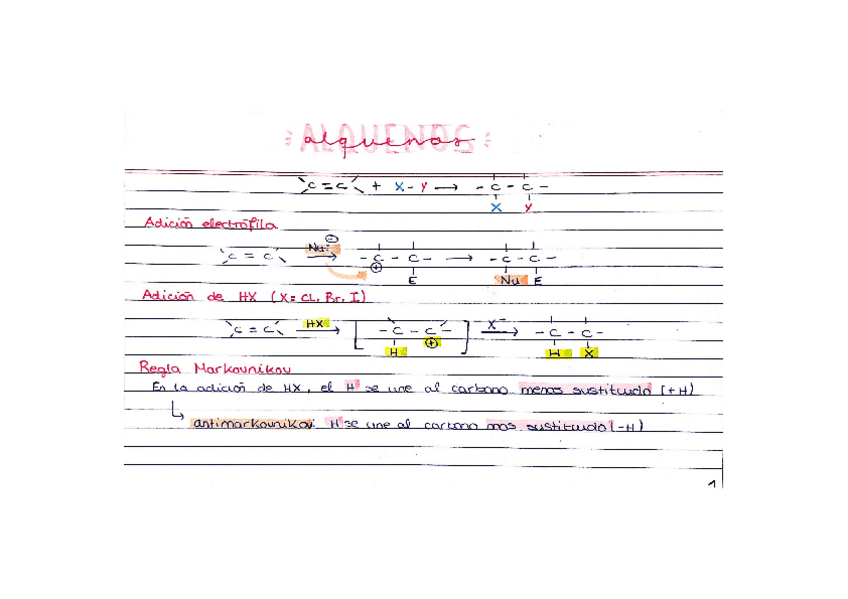 ALQUENOS
alquenos
C = C + X - Y → - C - C -
X Y
Adición electrófila
C = C Nu:⊖ → - C - C - → - C - C -
⊕ E Nu E
Adición de HX (X = CL, Br, I)
C = C HX → [ - C - C - ] X⁻ → - C - C -
H ⊕ H X
Regla Markounikov
En la adición de HX, el H se une al carbono menos sustituido (+H)
↳ antimarkounikov: H se une al carbono mas sustituido (-H)
1